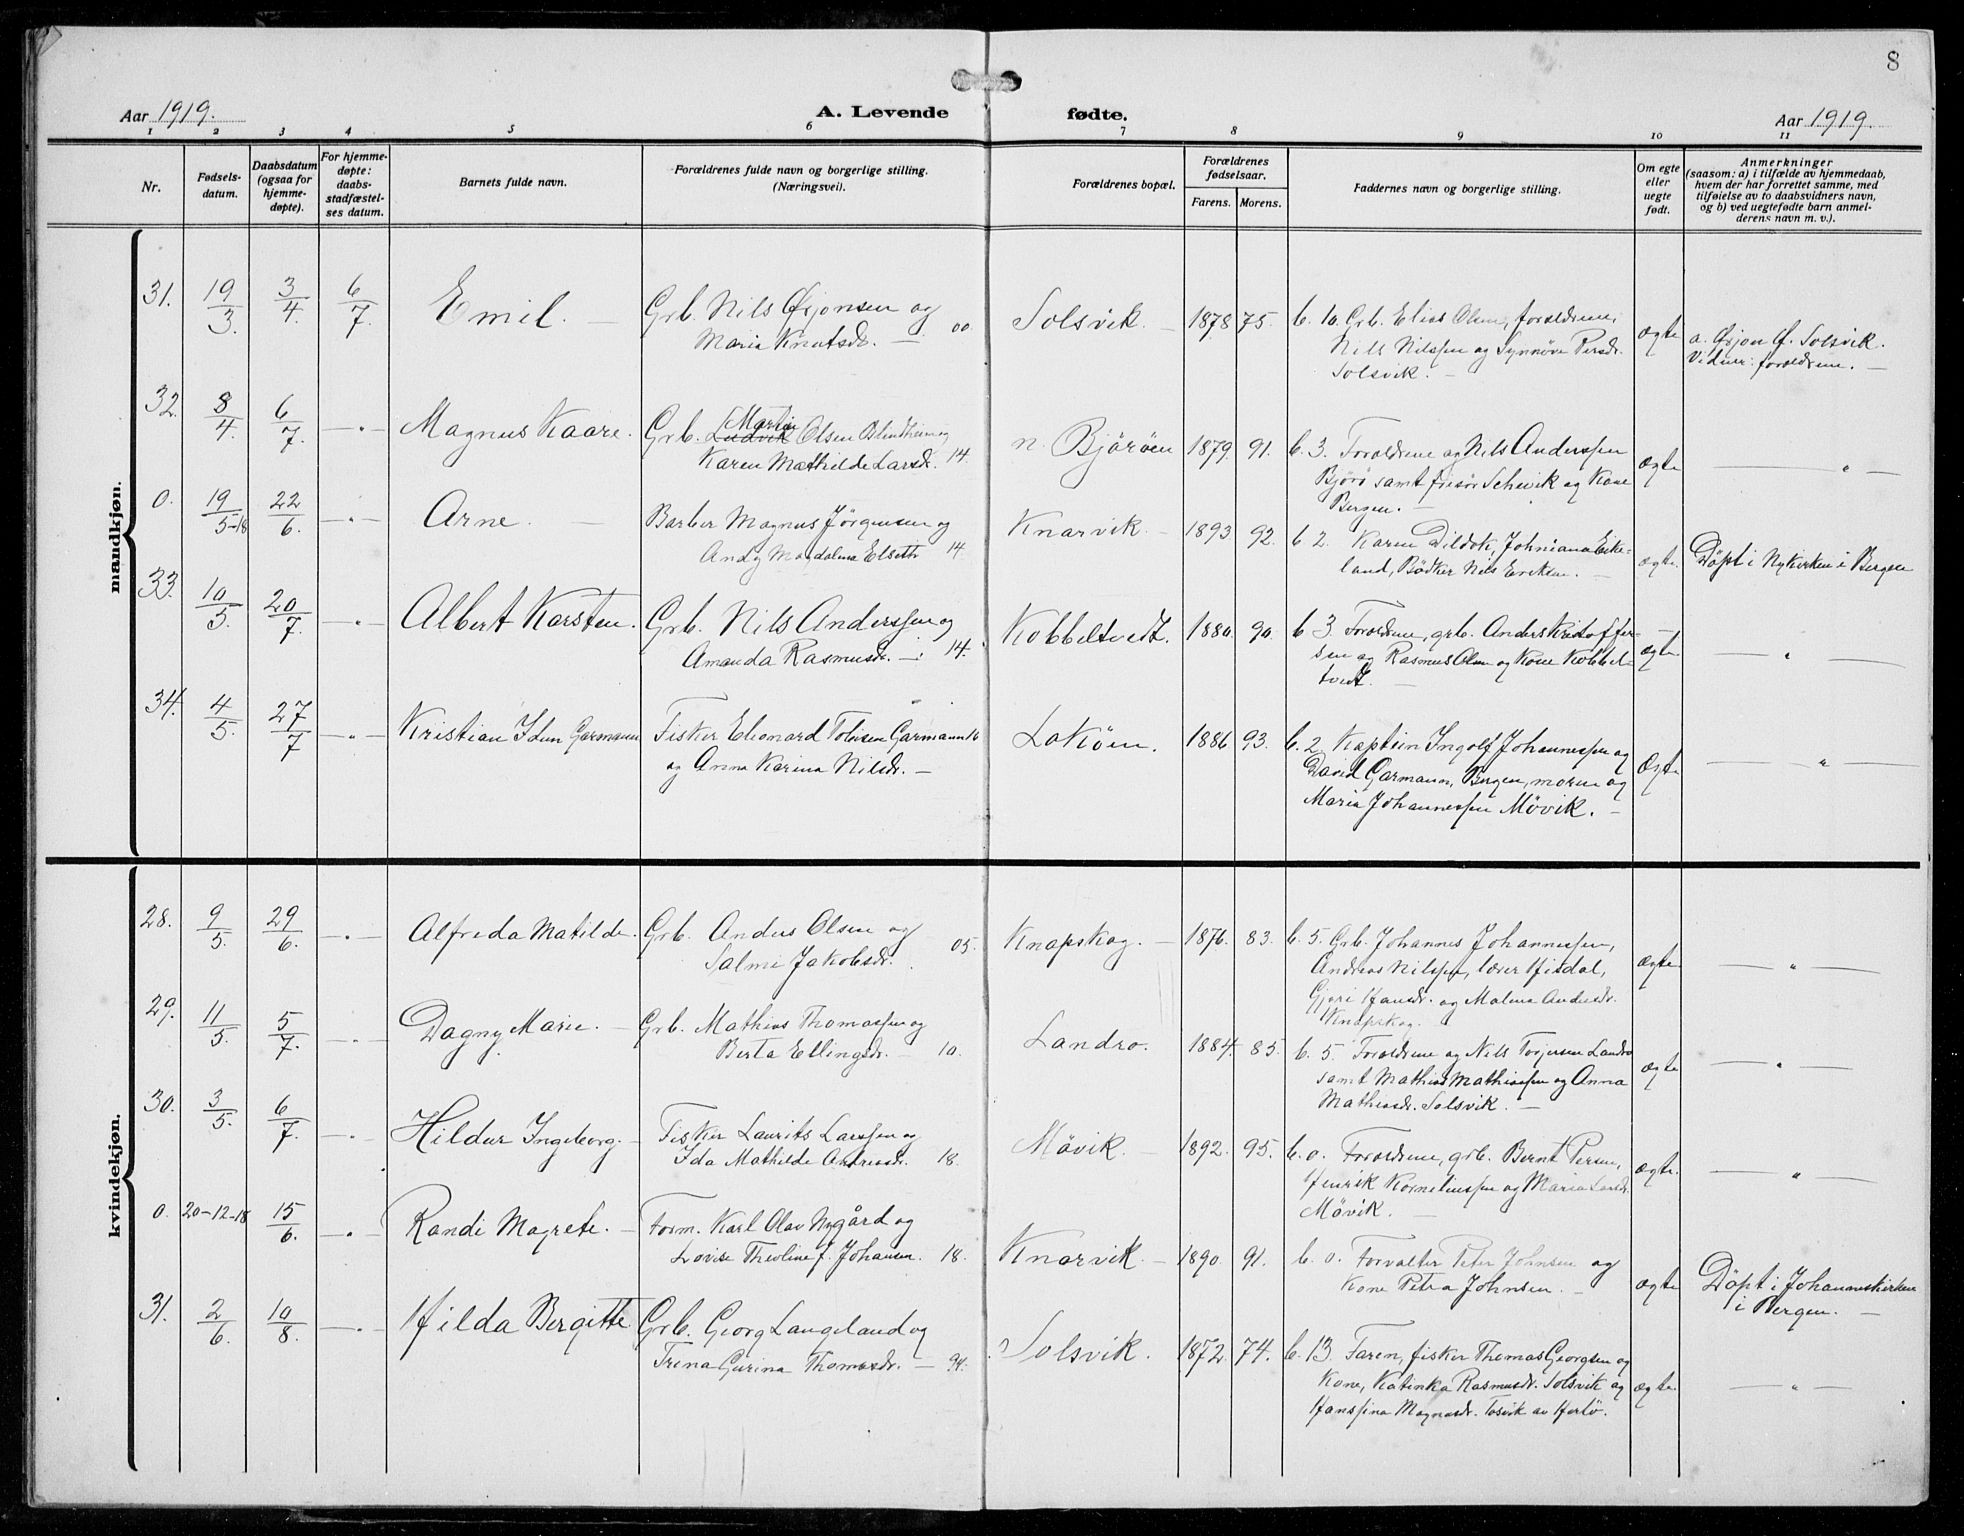 8
Aar 1919. A. Levende fødte. Aar 1919.
1 2 3 4 5 6 7 8 9 10 11
Nr.
Fødsels-
datum.
Daabsdatum
(ogsaa for
hjemme-
døpte).
For hjemme-
døpte:
daabs-
stadfæstel-
ses datum.
Barnets fulde navn.
Forældrenes fulde navn og borgerlige stilling.
(Næringsvei).
Forældrenes bopæl.
Forældrenes
fødselsaar.
Farens. Morens.
Faddernes navn og borgerlige stilling.
Om egte
eller
uegte
født.
Anmerkninger
(saasom: a) i tilfælde av hjemmedaab,
hvem der har forrettet samme, med
tilføielse av to daabsvidners navn,
og b) ved uegtefødte barn anmel-
derens navn m. v.).
mandkjøn.
31. 19/3. 3/4. 6/7. Emil. — Grb. Nils Øsjonsen og
Maria Knutsdr. — 00
Solsvik. — 1878 75.
b. 10. Grb. Elias Olsen, forældrene,
Nils Nilssen og Synnøve Persdr.
Solsvik. —
ægte
a. Øsjon Ø. Solsvik.
Vidner: forældrene. —
32. 8/4. 6/7. —"— Magnus Kaare. Grb. Ludvik Martin Olsen Blindheim og
Karen Mathilde Larsdr. 14.
n. Bjørøen 1879. 91.
b. 3. Forældrene og Nils Anderssen
Bjørø samt frisør Schevik og Kone
Bergen. —
ægte
— " —
0. 19/5-18 22/6. —"— Arne. — Barber Magnus Jörgensen og
Andy Magdalena Elseth 14.
Knarvik. — 1893. 92.
b. 2. Karen Dildok, Johniana Eike-
land, Bødker Nils Eriksen. —
ægte.
Döpt i Nykirken i Bergen
33. 10/5. 20/7. —"— Albert Karsten. Grb. Nils Anderssen og
Amanda Rasmusdr. — 14.
Kobbeltvedt. 1880. 90.
b 3. Forældrene, grb. Anders Kristoffer-
sen og Rasmus Olsen og Kone Kobbel-
tvedt. —
ægte
— " —
34. 4/5. 27/7 —"— Kristian Idun Garmann Fisker Eleonard Tobisen Garmann 16
og Anna Karina Nilsdr. —
Lokøen. 1886 93.
b. 2. Kaptein Ingolf Johannessen og
David Garmann, Bergen, moren og
Maria Johannessen Mövik. —
Ægte
— " —
kvindekjøn.
28. 9/5. 29/6. —"— Alfreda Matilde. Grb. Anders Olsen og
Salmi Jakobsdr. 05.
Knapskog. — 1876. 83.
b. 5. Grb. Johannes Johannessen,
Andreas Nilssen, lærer Hisdal,
Gjøri Hansdr. og Malena Andersdr.
Knapskog.
ægte
— " —
29. 11/5. 5/7. —"— Dagny Marie. — Grb. Mathias Thomassen og
Berta Ellingsdr. — 10.
Landro. 1884. 85.
b. 5. Forældrene og Nils Torjersen Landro
samt Mathias Mathiassen og Anna
Mathiasdr. Solsvik. —
ægte
— " —
30. 3/5. 6/7. —"— Hildur Ingeborg. — Fisker Laurits Larssen og
Ida Mathilde Andreasdr. 18.
Mövik. — 1892. 95.
b. 0. Forældrene, grb. Bernt Persen,
Henrik Korneliussen og Maria Larsdr.
Mövik. —
ægte.
— " —
0. 20-12-18 15/6. —"— Randi Magrete. — Form. Karl Olav Nygård og
Lovise Theoline f. Johansen. 18.
Knarvik. — 1890. 91.
b. 0. Forvalter Peter Johnsen og
Kone Petra Johnsen. —
ægte
Döpt i Johanneskirken
i Bergen. —
31. 2/6. 10/8. —"— Hilda Bergitte. Grb. Georg Langeland og
Trina Gurina Thomasdr. — 94.
Solsvik. 1872. 74.
b. 13. Faren, fisker Thomas Georgsen og
Kone, Katinka Rasmusdr. Solsvik og
Hanssina Magnusdr. Tosvik av Hertö.
ægte
— " —